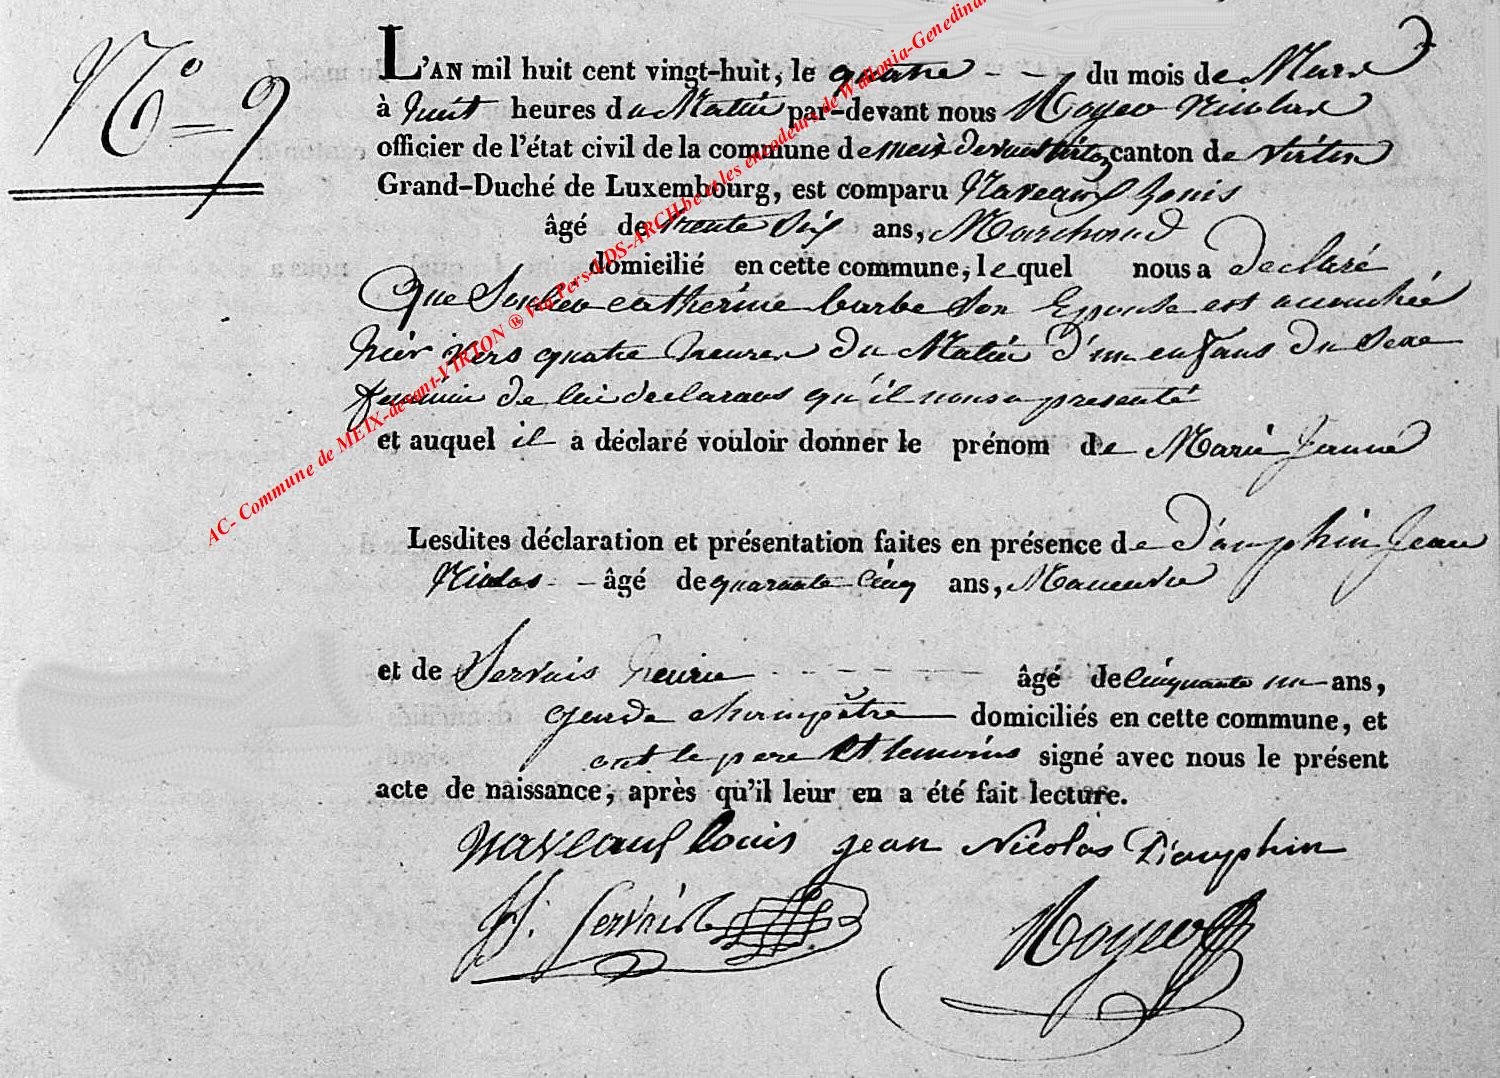 N.° 9
L'AN mil huit cent vingt-huit, le quatre - - du mois de Mars
à huit heures du Matin par-devant nous Noyer Nicolas
officier de l'état civil de la commune de meix devant virton canton de virton
Grand-Duché de Luxembourg, est comparu Naveaux Louis
âgé de trente six ans, Marchand
domicilié en cette commune, lequel nous a declaré
Que catherine barbe Son Epouse est accouchée
hier vers quatre heures du Matin d'un enfans du Sexe
feminin de lui declarans qu'il nous a presenté
et auquel il a déclaré vouloir donner le prénom de Marie Jeanne
Lesdites déclaration et présentation faites en présence de Dauphin Jean
Nicolas - - âgé de quarante cinq ans, Manœuvre
et de Servais henrie - - - - - âgé de cinquante un ans,
garde champêtre domiciliés en cette commune, et
ont le pere et temoins signé avec nous le présent
acte de naissance, après qu'il leur en a été fait lecture.
naveaux louis jean Nicolas Dauphin
H. Servais Noyer
AC- Commune de MEIX-devant-VIRTON ® Via Pers-LDS-ARCH.be et les encodeurs de Wallonia-Genedina